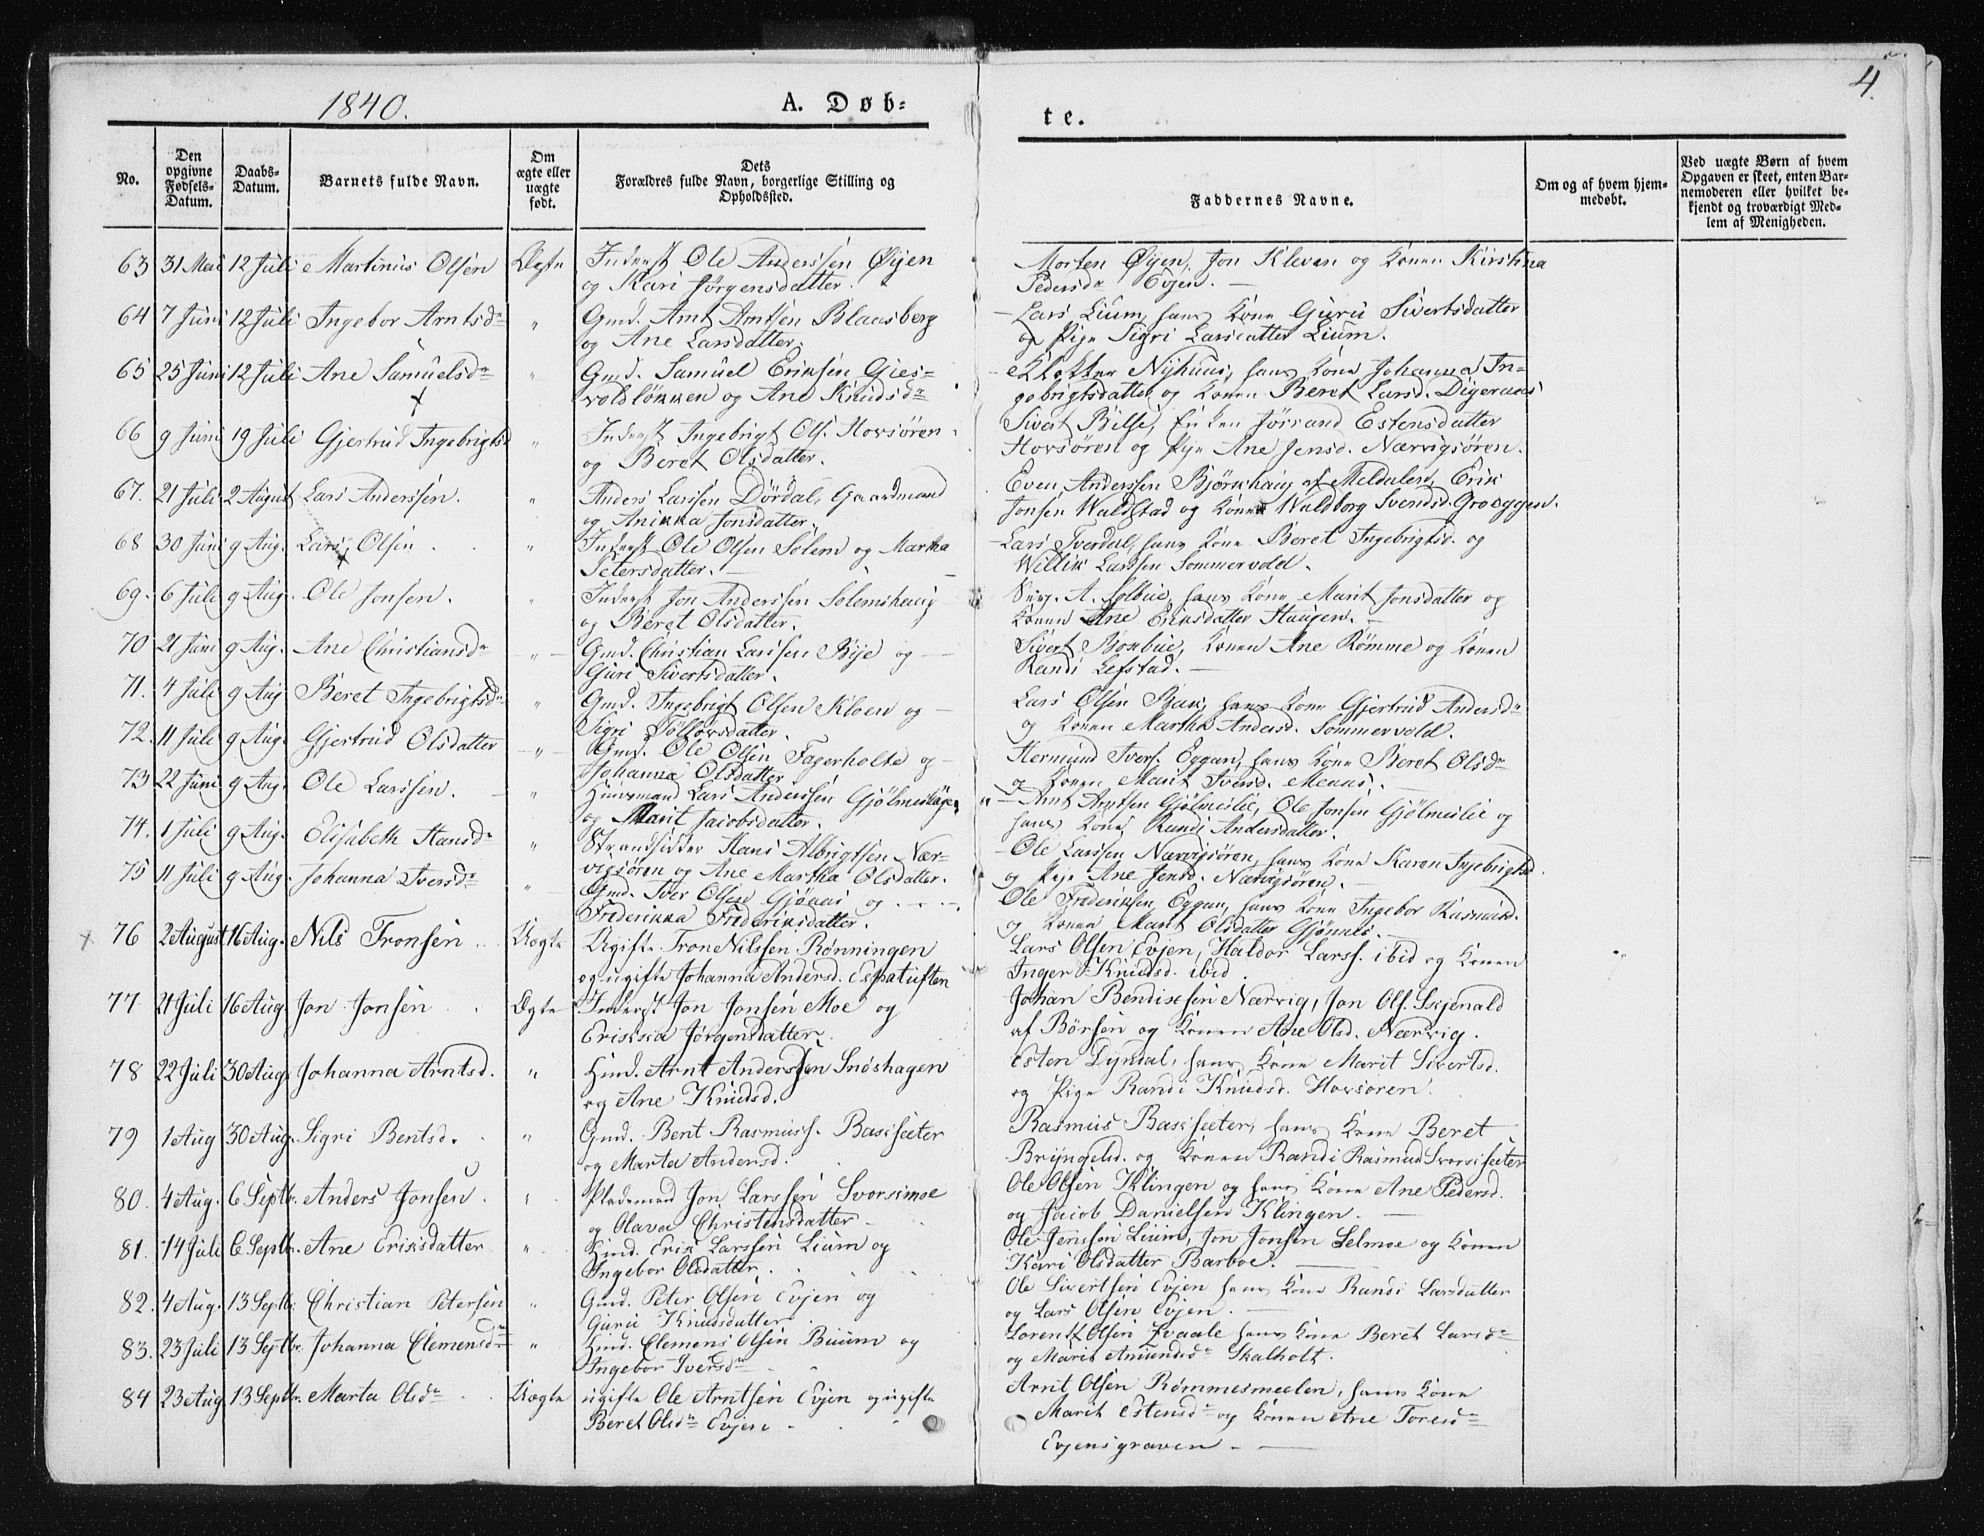 4.
1840.
A. Døb-
te.
No.
Den opgivne Fødsels-Datum.
Daabs-Datum.
Barnets fulde Navn.
Om ægte eller uægte født.
Dets Forældres fulde Navn, borgerlige Stilling og Opholdssted.
Faddernes Navne.
Om og af hvem hjemmedøbt.
Ved uægte Børn af hvem Opgaven er skeet, enten Barnemoderen eller hvilket bekjendt og troværdigt Medlem af Menigheden.
63 31 Mai 12 Juli Martinus Olsen Ægte Inderst Ole Anderssen Øyen
og Kari Jørgensdatter.
Morten Øyen, Jon Kleven og Konen Kirstina
Pedersdr Evjen.
64 7 Juni 12 Juli Ingebor Arntsdr " Gmd. Arnt Arntsen Blaasberg
og Ane Larsdatter.
Lars Lium, hans Kone Guru Sivertsdatter
og Pige Sigri Larsdatter Lium.
65 25 Juni 12 Juli Ane Samuelsdr " Gmd. Samuel Eriksen Gjes-
voldløkken og Ane Knudsdr
Klokker Nyhuus, hans Kone Johanna In-
gebrigtsdatter og Konen Beret Larsd. Digeraas
66 9 Juni 19 Juli Gjertrud Ingebrigtsd " Inderst Ingebrigt Ols. Hovsøren
og Beret Olsdatter.
Sivert Bilse, Enken Jørand Estensdatter
Hovsøren og Pige Ane Jensd. Nærvigsøren.
67. 21 Juli 2 August Lars Anderssen. " Anders Larssen Dørdal, Gaardmand
og Anikka Jonsdatter.
Even Anderssen Bjørkhaug af Meldalen, Erik
Jonsen Waldstad og Konen Waldborg Svendsd. Groeggen.
68 30 Juni 9 Aug. Lars Olsen " Inderst Ole Olsen Solem og Martha
Petersdatter.
Lars Tverdal, hans Kone Beret Ingebrigtsd. og
Willik Larssen Sommervold.
69. 6 Juli 9 Aug. Ole Jonsen. " Inderst Jon Anderssen Solemshaug
og Beret Olsdatter.
A. Solbue, hans Kone Marit Jonsdatter og
Konen Ane Eriksdatter Haugen.
70 21 Juni 9 Aug. Ane Christiansdr " Gmd. Christian Larssen Rye og
Guri Sivertsdatter.
Sivert Bokbue, Konen Ane Rømme og Konen
Randi Lefstad.
71. 4 Juli 9 Aug Beret Ingebrigtsdr " Gmd. Ingebrigt Olsen Kloen og
Sigri Følløvsdatter.
Lars Olsen Bak, hans Kone Gjertrud Andersdr
og Konen Martha Andersd. Sommervold.
72. 11 Juli 9 Aug. Gjertrud Olsdatter " Gmd. Ole Olsen Fagerholte og
Johanna Olsdatter
Hermund Ivers. Eggan, hans Kone Beret Olsdr
og Konen Marit Iversd. Meaas.
73 22 Juni 9 Aug. Ole Larssen. " Huusmand Lars Anderssen Gjølmesløgen
og Marit Jacobsdatter.
Arnt Arntsen Gjølmeslie, Ole Jonsen Gjølmeslie og
hans Kone Randi Andersdatter.
74. 1 Juli 9 Aug. Elisabeth Hansdr " Strandsidder Hans Albrigtsen Nær-
vigsøren og Ane Martha Olsdatter.
Ole Larssen Nærvigsøren, hans Kone Karen Ingebrigtsd.
og Pige Ane Jensd. Nærvigsøren.
75 11 Juli 9 Aug. Johanna Iversdr " Gmd. Iver Olsen Gjønnes og
Frederikka Frederiksdatter.
Ole Frederiksen Eggan, hans Kone Ingebor Rasmusd.
og Konen Marit Olsdatter Gjønnes.
76 2 August 16 Aug. Nils Tronsen Uægte Ugifte Tron Nilssen Rønningen
og ugifte Johanna Andersd. Espatuften
Lars Olsen Evjen, Haldor Larss. ibid og Konen
Inger Knudsd. ibid.
77 21 Juli 16 Aug. Jon Jonsen Ægte Inderst Jon Jonsen Moe og
Eriksia Jørgensdatter.
Johan Bendixsen Nærvig, Jon Ols. Skjenald
af Børsen og Konen Ane Olsd. Nærvig.
78 22 Juli 30 Aug. Johanna Arntsd. " Hmd. Arnt Anderssen Snøshagen
og Ane Knudsd.
Esten Dyrdal, hans Kone Marit Sivertsd.
og Pige Randi Knudsd. Hovsøren.
79 1 Aug 30 Aug. Sigri Bentsd. " Gmd. Bent Rasmuss. Bakseter
og Marta Andersd.
Rasmus Bakseter, hans Kone Beret
Bryngelsd. og Konen Randi Rasmusd Svorkseter
80. 4 Aug. 6 Septbr. Anders Jonsen. " Pladsmand Jon Larssen Svorkmoe
og Olava Christensdatter
Ole Olsen Klingen og hans Kone Ane Pedersd.
og Jacob Danielsen Klingen.
81. 14 Juli 6 Septbr. Ane Eriksdatter " Hmd. Erik Larssen Lium og
Ingebor Olsdatter.
Ole Jenssen Lium, Jon Jonsen Selmoe og Konen
Kari Olsdatter Barboe.
82. 4 Aug. 13 Septbr. Christian Petersen " Gmd. Peter Olsen Evjen og
Guru Knudsdatter
Ole Sivertsen Evjen hans Kone Randi Larsdatter
og Lars Olsen Evjen.
83. 23 Juli 13 Septbr. Johanna Clemensdr " Hmd. Clemens Olsen Buum og
Ingebor Iversdr
Lorentz Olsen Kvaale hans Kone Beret Larsdr
og Marit Amundsdr Skalholt.
84 23 Aug 13 Septbr. Marta Olsdr Uægte ugifte Ole Arntsen Evjen og ugifte
Beret Olsdr Evjen
Arnt Olsen Rømmesmeelen, hans Kone
Marit Estensdr og Konen Ane Toresdr
Evjensgraven